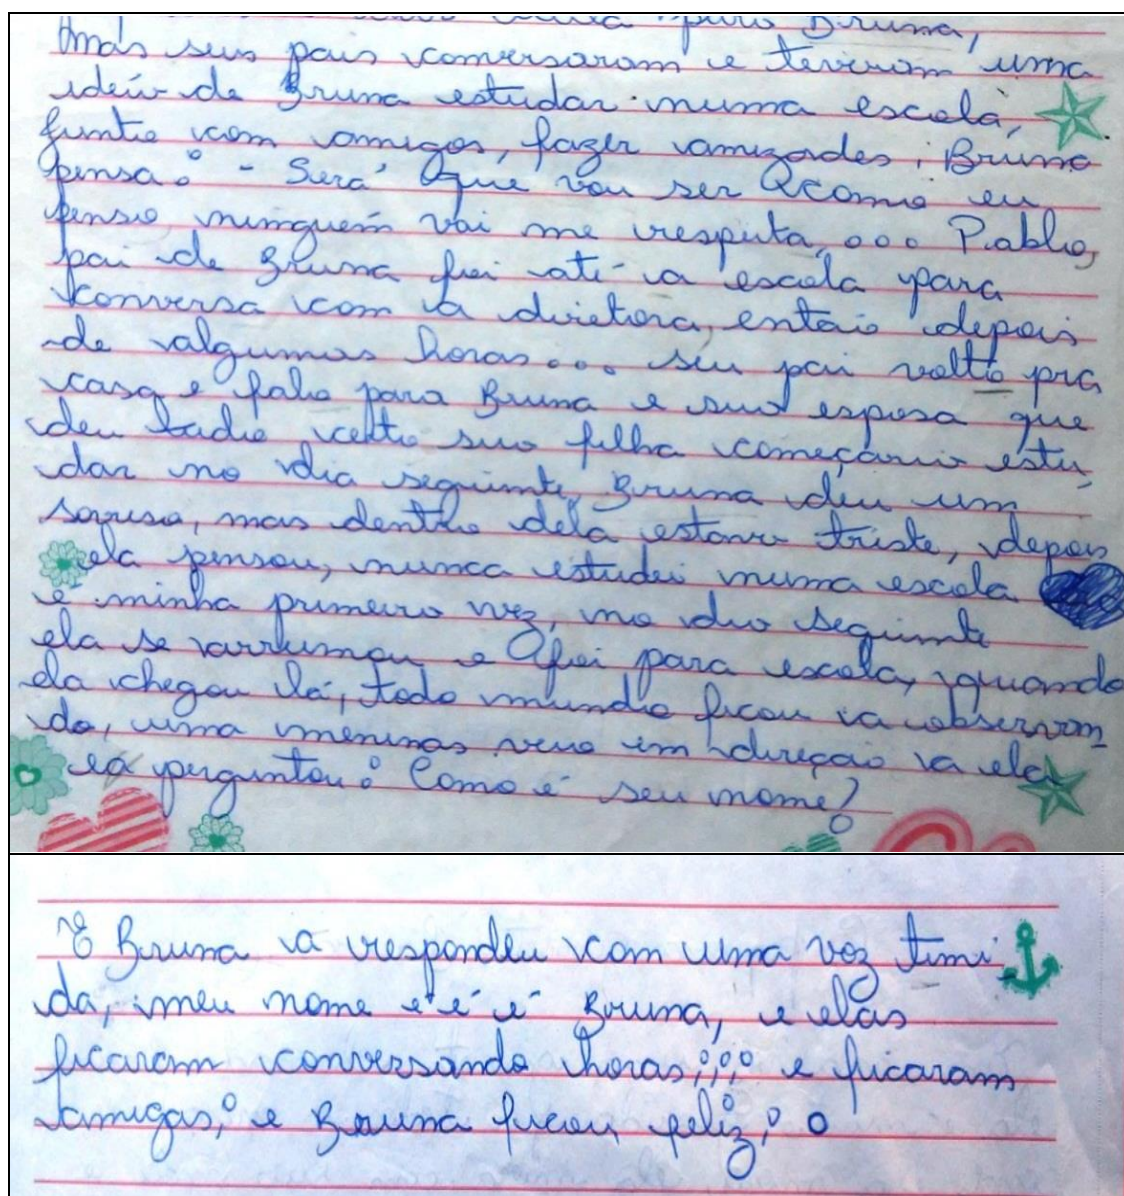 para Bruna,
mas seus pais conversaram e tiveram uma
ideia de Bruna estudar numa escola,
junto com amigos, fazer amizades, Bruna
pensa: - Será que vou ser como eu
penso, ninguém vai me respeita, ... Pablio,
pai de Bruna foi até a escola para
conversa com a diretora, entaio depois
de algumas horas... seu pai voltio pra
casa e falo para Bruna e sua esposa que
deu tudio certo sua filha começaria estu
dar no dia seguinte, Bruna deu um
soriso, mas dentro dela estava triste, depois
ela pensou, nunca estudei numa escola
é minha primeira vez, no dia seguinte
ela se arrumou e foi para escola, quando
ela chegou lá, todo mundo ficou a observan-
do, uma meninas veio em direção a ela
ea perguntou: Como é seu nome?
E Bruna a respondeu com uma voz timi
da, meu nome é é é Bruna, e elas
ficaram conversando horas;;;° e ficaram
amigas,° e Bruna ficou feliz,° o